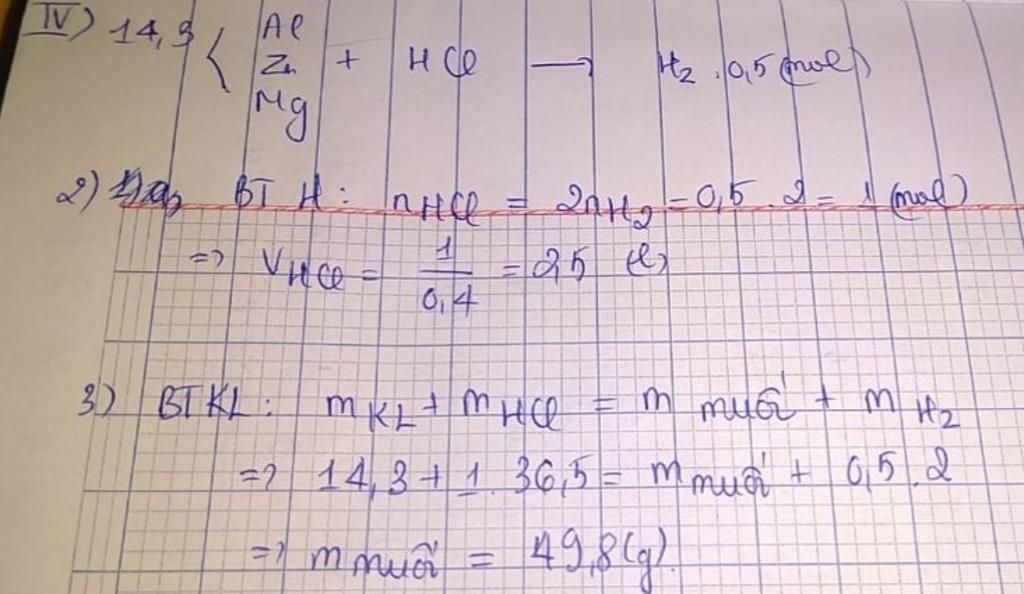 IV) 14,3 < Al
Zn + HCl → H₂ . 0,5 (mol)
Mg
2) BT H : nHCl = 2nH₂ = 0,5 . 2 = 1 (mol)
=> VHCl = 1/0,4 = 2,5 (l)
3) BTKL : mKL + mHCl = m muối + m H₂
=> 14,3 + 1. 36,5 = m muối + 0,5 . 2
=> m muối = 49,8 (g).